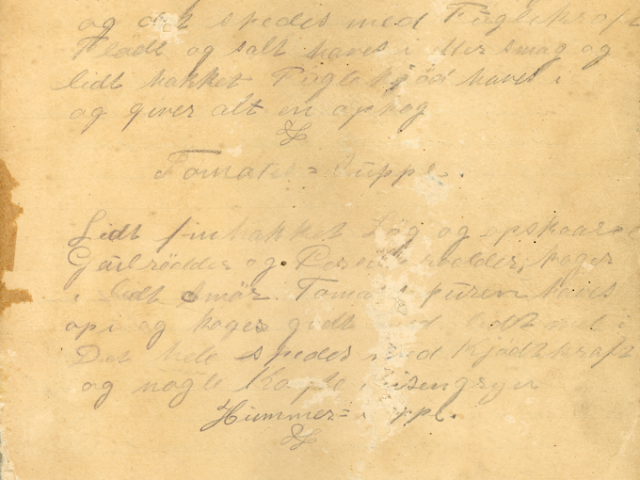 og det spedes med Fuglekraft
Fladt og salt haves i efter smag og
lidt hakket Fuglekjød haves i
og giver alt en opkog
Tomates= Suppe.
Lidt finhakket Løg og opskaarne
Gulrødder og Persillerødder, koges
i lidt Smør. Tomatpureen haves
opi og koges godt med lidt mel i
Det hele spedes med Kjødtkraft
og nogle Kogte Risengryn
Hummer= Suppe.